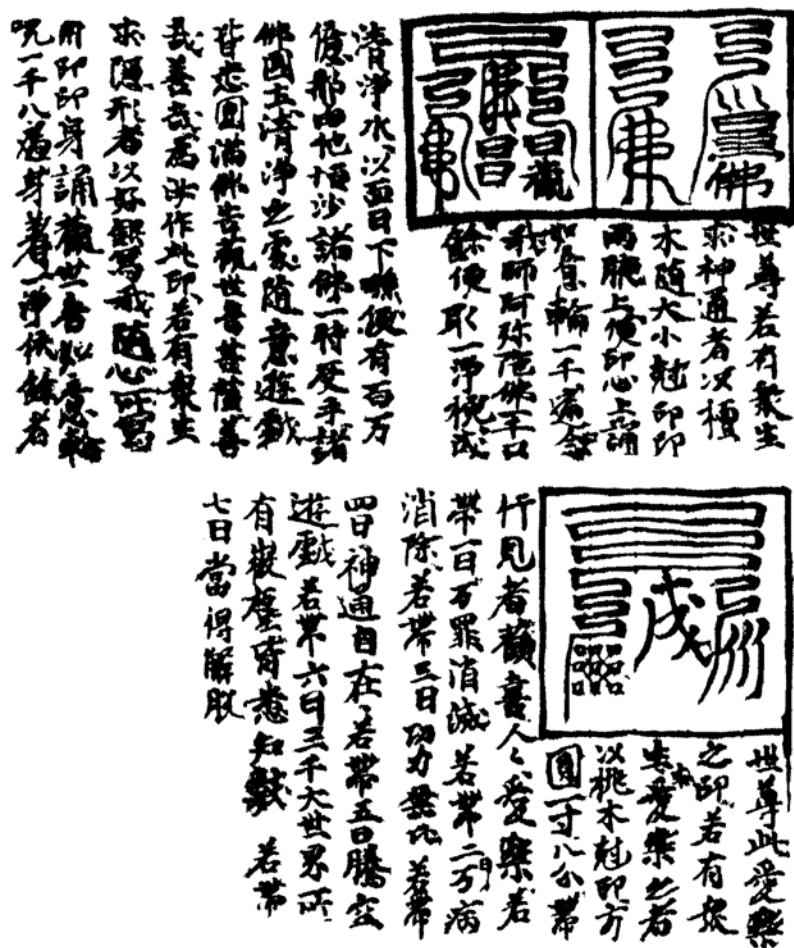 世尊若有衆生
求神通者以檀
木随大小尅印印
兩腕上便印心上誦
如意輪一千遍念
我師阿弥陁佛一千口
餘便取一淨椀盛
清淨水以面目下噀便有百万
億那由他恒沙諸佛一時受手諸
佛國土清淨之處随意遊戲
皆悉圓滿佛告觀世音菩薩善
哉善哉為汝作此印若有衆生
求隱形者以好銀寫我随心所寫
用印印身誦觀世音如意輪
呪一千八遍身著一淨衣餘者
世尊此愛樂
之印若有衆
生求愛樂之者
以桃木尅印方
圓一寸八分帶
行見者歡喜人々愛樂若
帶一日万罪消滅若帶二日万病
消除若帶三日功力無比若帶
四日神通自在若帶五日騰空
遊戲若帶六日三千大世界所
有微塵皆悉知數 若帶
七日當得解脫